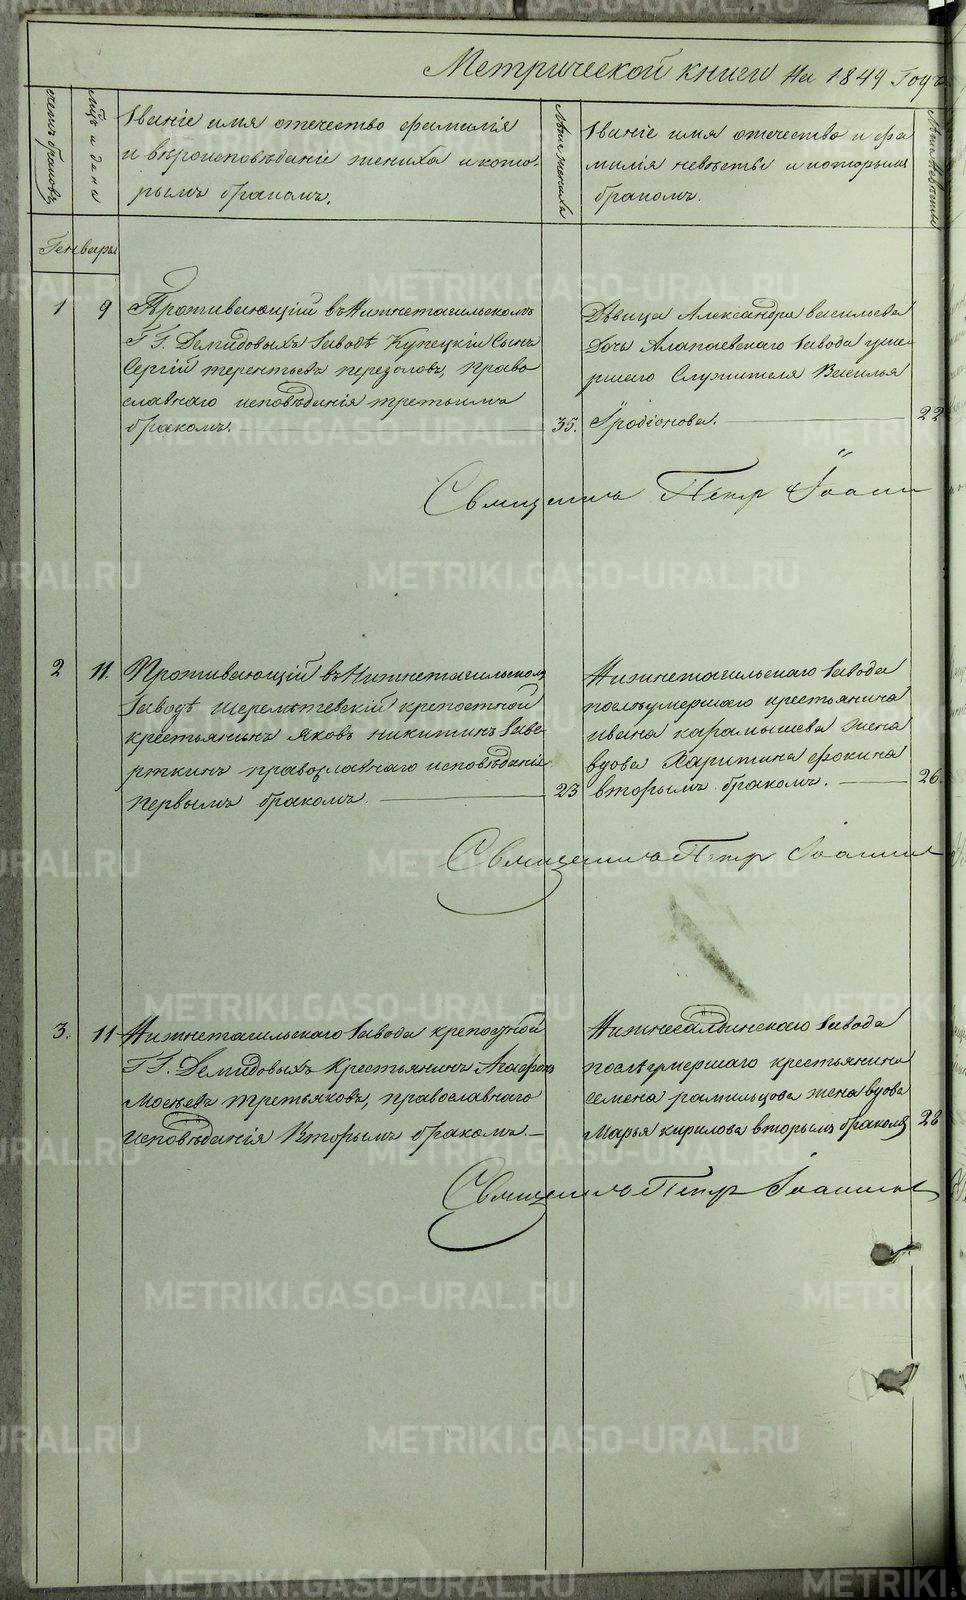 Метрической книги на 1849 Годъ
счетъ браковъ
мцъ и дни
Званіе имя отечество фамилія
и вѣроисповѣданіе жениха и кото-
рымъ бракомъ.
Лѣта жениха
Званіе имя отечество и фа
милія невѣсты и которымъ
бракомъ.
Лѣта невѣсты
Генваръ
1 9 Проживающій въ Нижнетагильскомъ
ГГ. Демидовыхъ заводѣ Купецкій Сынъ
Сергій терентьевъ перезоловъ, право
славнаго исповѣданія третьимъ
бракомъ. 35.
Дѣвица Александра васильева
Дочь Алапаевскаго завода уме-
ршаго Служителя Василья
Іродіонова. 22
Священникъ Петр Іоанн
2 11. Проживающій въ Нижнетагильском
заводѣ шереметевскій крепостной
крестьянинъ Яковъ никитинъ заве-
рткинъ православнаго исповѣданіе
первымъ бракомъ. 23
Нижнетагильскаго завода
послѣумершаго крестьянина
ивана карамышева жена
вдова Харитина фокина
вторымъ бракомъ. 26.
Священникъ Петр Іоанни
3. 11 Нижнетагильскаго завода крепостной
ГГ. Демидовыхъ Крестьянинъ Агафонъ
Мосѣевъ третьяковъ, православнаго
исповѣданія вторымъ бракомъ.
Нижнесалдинскаго завода
послѣумершаго крестьянина
семена рамильцова жена вдова
Марья кирилова вторымъ бракомъ 28
Священникъ Петр Іоанни
METRIKI.GASO-URAL.RU